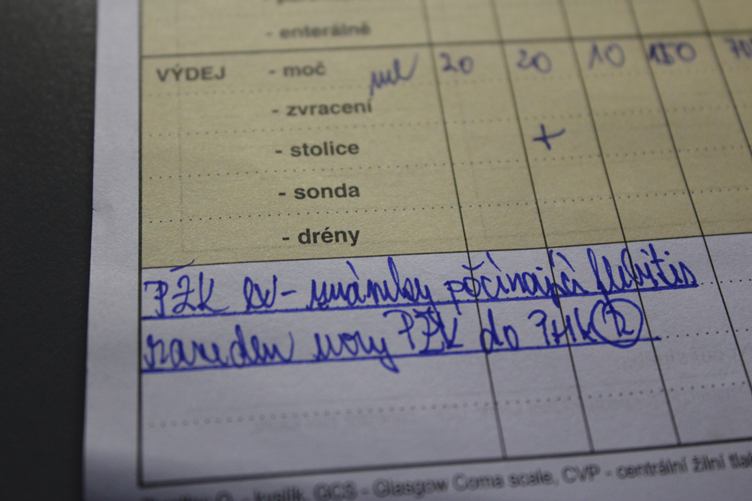 - enterálně
VÝDEJ - moč ml 20 20 10 150 70
- zvracení
- stolice +
- sonda
- drény
PŽK ex - známky počínající flebitis
zaveden nový PŽK do PHK
kyslík, GCS - Glasgow Coma scale, CVP - centrální žilní tlak